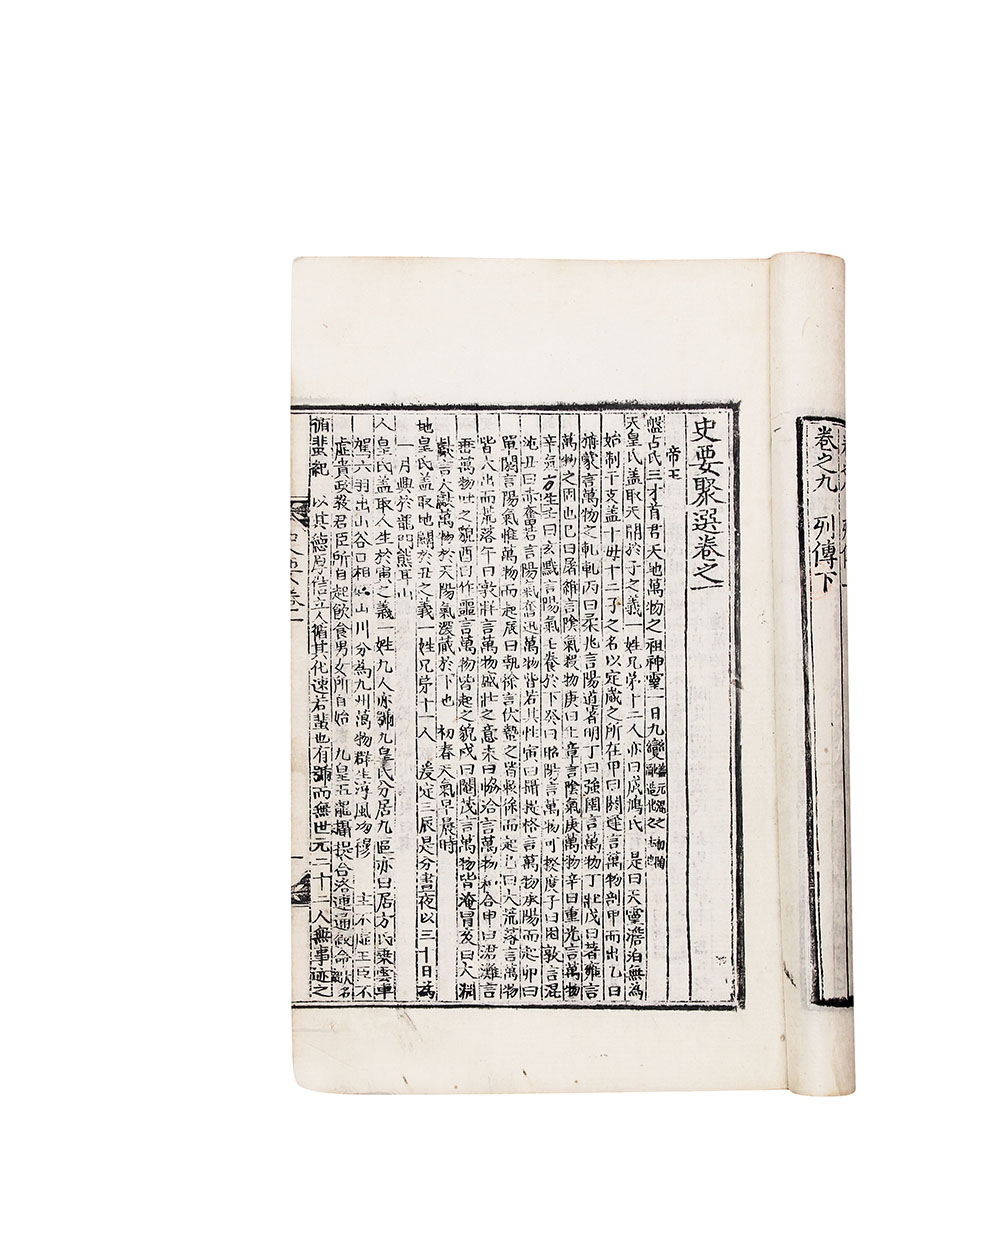 卷之九 列傳下
史要聚選卷之一
帝王
盤古氏三才首君天地萬物之祖神靈一日九變
天皇氏盖取天開於子之義一姓兄弟十二人亦曰成鳩氏 是曰天靈澹泊無為
始制干支盖十母十二子之名以定歲之所在甲曰閼逢言萬物剖甲而出乙曰
旃蒙言萬物之軋軋丙曰柔兆言陽道著明丁曰強圉言萬物丁壯戊曰著雍言
萬物之固也己曰屠維言陰氣殺物庚曰上章言陰氣庚萬物辛曰重光言萬物
辛氣方生壬曰玄黓言陽氣壬養於下癸曰昭陽言萬物可揆度子曰困敦言混
沌丑曰赤奮若言陽氣奮迅萬物皆若其性寅曰攝提格言萬物承陽而起卯曰
單閼言陽氣惟萬物而起辰曰執徐言伏蟄之皆敕徐而起巳曰大荒落言萬物
皆大出而荒落午曰敦牂言萬物盛壯之意未曰協洽言萬物和合申曰涒灘言
垂萬物吐之貌酉曰作噩言萬物皆起之貌戌曰閹茂言萬物皆淹冒亥曰大淵
獻言大獻萬物於天陽氣深藏於下也 初春天氣早晨時
地皇氏盖取地闢於丑之義一姓兄弟十一人 爰定三辰是分晝夜以三十日為
一月興於龍門熊耳山
人皇氏盖取人生於寅之義一姓九人亦號九皇氏分居九區亦曰居方氏乘雲車
駕六羽出山谷口相山川分為九州萬物群生淳風沕穆 主不虛王臣不
虛貴政教君臣所自起飮食男女所自始 九皇五龍攝提合洛連通叙命
循蜚紀 以其德厚信立人循其化速若蜚也有號而無世元二十二人無事跡之